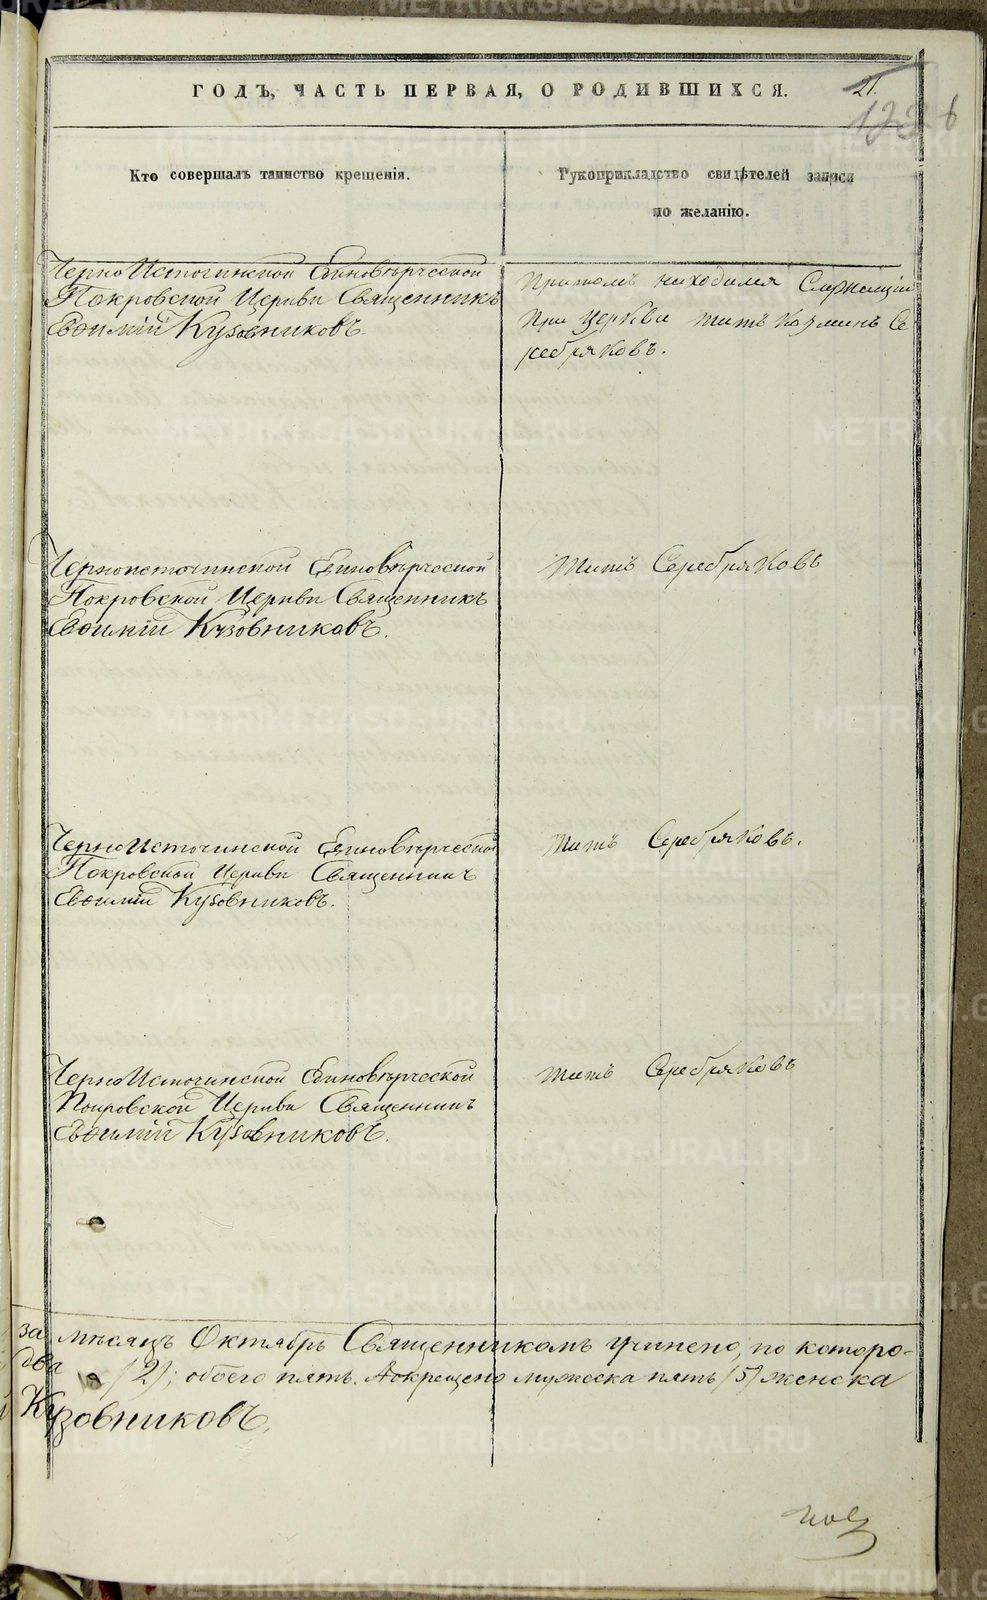 ГОДЪ, ЧАСТЬ ПЕРВАЯ, О РОДИВШИХСЯ.
21.
Кто совершалъ таинство крещенія.
Рукоприкладство свидѣтелей записи
по желанію.
ЧерноИсточинской Единовѣрческой
Покровской Церкви Священникъ
Евѳимій Кузовниковъ.
При томъ находился
при Церкви Титъ Козминъ Се
ребряковъ.
Черноисточинской Единовѣрческой
Покровской Церкви Священникъ
Евѳимій Кузовниковъ.
Титъ Серебряковъ
ЧерноИсточинской Единовѣрческой
Покровской Церкви Священникъ
Евѳимій Кузовниковъ.
Титъ Серебряковъ.
ЧерноИсточинской Единовѣрческой
Покровской Церкви Священникъ
Евѳимій Кузовниковъ.
Титъ Серебряковъ
за мѣсяцъ Октябрь Священникомъ учинено, по которо-
два /2/; обоего пять. Докрещено мужеска пять /5/ женска
Кузовниковъ.
METRIKI.GASO-URAL.RU